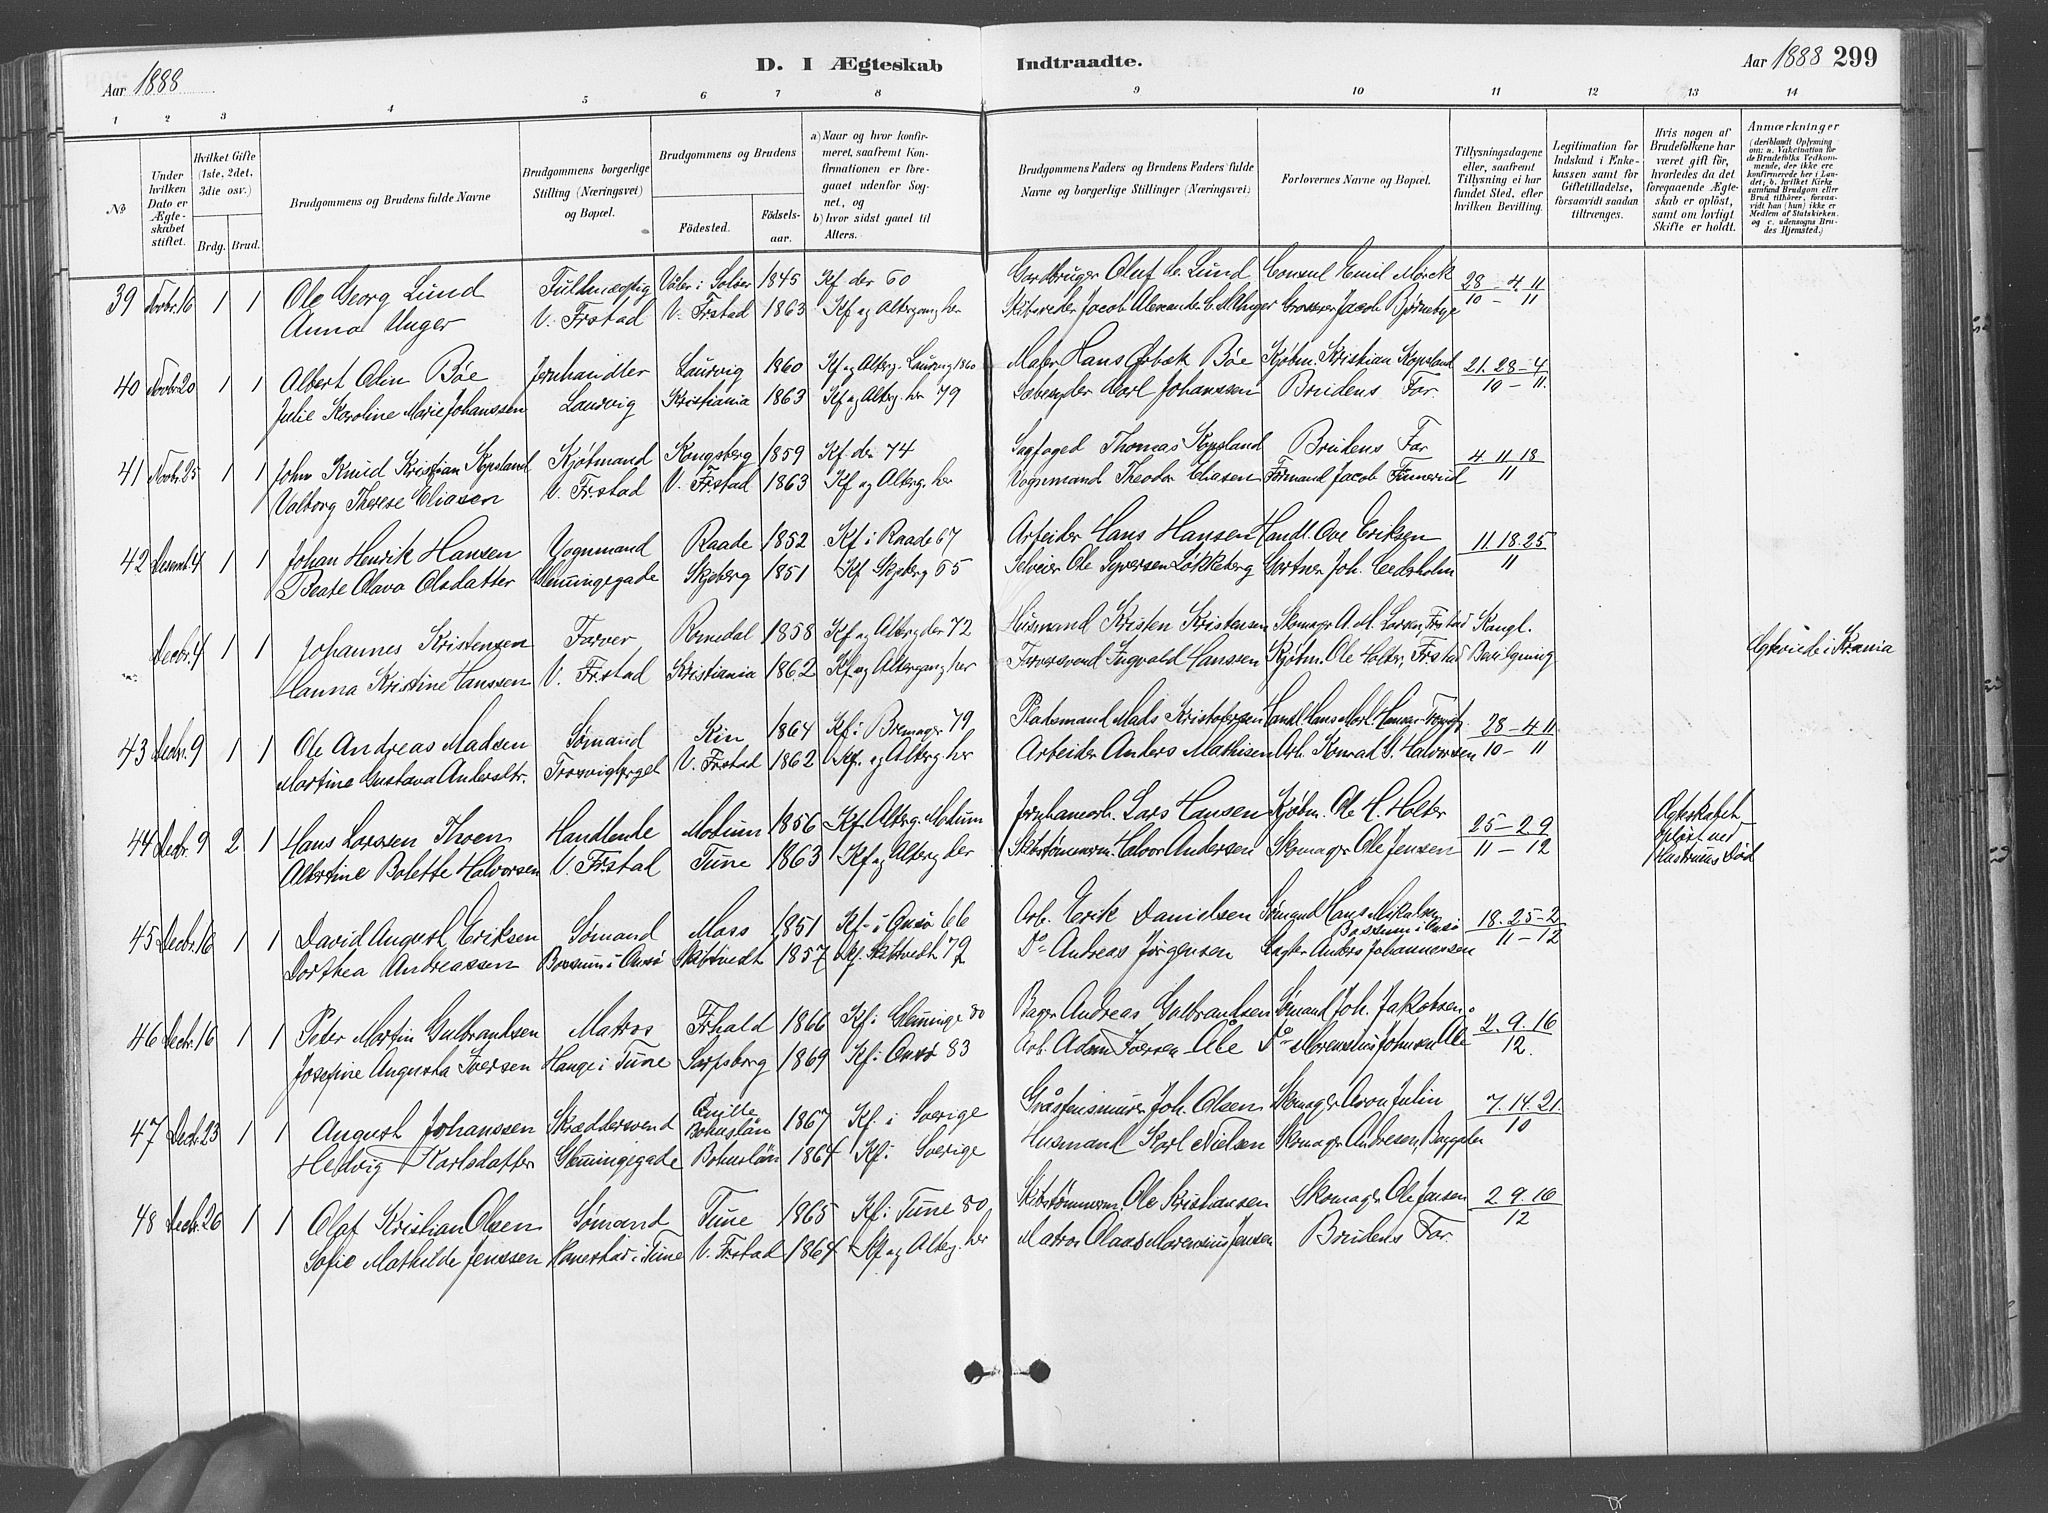 Aar 1888
D. I Ægteskab Indtraadte.
Aar 1888 299
1 2 3 4 5 6 7 8 9 10 11 12 13 14
No
Under hvilken Dato er Ægteskabet stiftet.
Hvilket Gifte (1ste, 2det, 3die osv.)
Brdg. Brud.
Brudgommens og Brudens fulde Navne
Brudgommens borgerlige Stilling (Næringsvei) og Bopæl.
Brudgommens og Brudens
Fødested. Fødselsaar.
a) Naar og hvor konfirmeret, saafremt Konfirmationen er foregaaet udenfor Sognet, og
b) hvor sidst gaaet til Alters.
Brudgommens Faders og Brudens Faders fulde Navne og borgerlige Stillinger (Næringsvei)
Forlovernes Navne og Bopæl.
Tillysningsdagene eller, saafremt Tillysning ei har fundet Sted, efter hvilken Bevilling.
Legitimation for Indskud i Enkekassen samt for Giftetilladelse, forsaavidt saadan tiltrænges.
Hvis nogen af Brudefolkene har været gift før, hvorledes da det foregaaende Ægteskab er opløst, samt om lovligt Skifte er holdt.
Anmærkninger (deriblandt Oplysning om: a. Vakcination for de Brudefolks Vedkommende, der ikke ere konfirmerede her i Landet; b. hvilket Kirkesamfund Brudgom eller Brud tilhører, forsaavidt han (hun) ikke er Medlem af Statskirken, og c. udensogns Brudes Hjemsted.)
39 Novbr. 16 1 1 Ole Georg Lund Fuldmægtig Våler i Solør 1845 Kf der 60 Gardbruger Oluf C. Lund Consul Emil Mørck 28 - 4 11
Anna Unger V. Frstad V. Frstad 1863 Kf og Altergang her Skibsreder Jacob Alexander Unger Grosserer Jacob Bjørneby 10 - 11
40 Novbr. 20 1 1 Albert Odin Bøe Jernhandler Laurvig 1860 Kf og Alterg. Laurvig Maler Hans Bøe Kjøbm. Kristian Kopsland 21. 28 - 4
Julie Karoline Marie Johanssen Laurvig Kristiania 1863 Kf og Alterg. her 79 Sæbesyder Karl Johanssen Brudens Far. 10 - 11.
41 Novbr. 25 1 1 John Knud Kristian Kopsland Kjøbmand Kongsberg 1859 Kf der 74 Sagfoged Thomas Kopsland Brudens Far 4 11 18
Valborg Therese Eliasen V. Frstad V. Frstad 1863 Kf og Alterg. her Vognmand Theodor Eliasen Formand Jacob Finnerud 11
42 Desemb. 4 1 1 Johan Henrik Hansen Vognmand Raade 1852 Kf i Raade 67 Arbeider Hans Hansen Handl. Ove Eriksen 11. 18. 25
Beate Olava Olsdatter Glemmingegade Skjeberg 1851 Kf Skjeberg 65 Selveier Ole Syversen Løkkeberg Gartner Joh. Cedsholm 11
Decbr. 4 1 1 Johannes Kristensen Farver Romedal 1858 Kf og Alterg der 72 Husmand Kristen Kristensen Skomager A. M. Larsen, Frstad Kongl. Ægteviede i Krania
Hanna Kristine Hanssen V. Frstad Kristiania 1862 Kf og Altergang her Farversvend Ingvald Hanssen Kjøbm. Ole Holter, Frstad Bevilgning
43 Decbr. 9 1 1 Ole Andreas Madsen Sømand Kin 1864 Kf i Bremager 79 Pladsmand Mads Kristofersen Handl. Hans Mart. Hansen 28 - 4 11
Martine Gustava Andersdtr. Trosvigberget V. Frstad 1862 Kf. og Alterg. her Arbeider Anders Mathisen Arb. Konrad G. Halvorsen 10 - 11
44 Decbr. 9 2 1 Hans Larssen Thoen Handlende Modum 1856 Kf. Alterg. Modum Jernhandl. Lars Hansen Kjøbm. Ole H. Holter 25 - 2 9 Ægteskabet opløst ved Hustruens Død
Albertine Bolette Halvorsen V. Frstad Tune 1863 Kf og Alterg der Skibstømmerm. Halvor Andersen Skomager Ole Jensen 11 - 12
45 Decbr. 16 1 1 David August Eriksen Sømand Moss 1851 Kf i Onsø 66 Arb. Erik Danielsen Sømand Hans Mikalsen Bossum i Onsø 18. 25 - 2
Dorthea Andreassen Bossum i Onsø Skibtvedt 1857 Kf. Skibtvedt 72 Do Andreas Jørgensen Anders Johannessen 11 - 12
46 Decbr. 16 1 1 Peter Martin Gulbrandsen Matros Frhald 1866 Kf i Glemminge 80 Andreas Gulbrandsen Sømand Joh. Jakobsen 2. 9. 16
Josefine Augusta Iversen Hauge i Tune Sarpsborg 1869 Kf i Onsø 83 Arb. Adam Iversen Åle Do Morensius Johnsen Åle 12.
47 Decbr. 23 1 1 August Johanssen Skræddersvend Qville Bohuslän 1867 Kf i Sverige Gråstensmurer Joh. Olsen Skomager Aron Julin 7. 14. 21.
Hedvig Karlsdatter Glemmingegade Bohuslän 1864 Kf i Sverige Husmand Karl Nielsen Skomager Andresen, 10
48 Decbr. 26 1 1 Olaf Kristian Olsen Sømand Tune 1865 Kf i Tune 80 Skibstømmerm. Ole Kristiansen Skomager Ole Jensen 2 9. 16
Sofie Mathilde Jenssen Hanestad i Tune V. Frstad 1864 Kf og Alterg. her Matros Claus Morensius Jensen Brudens Far. 12